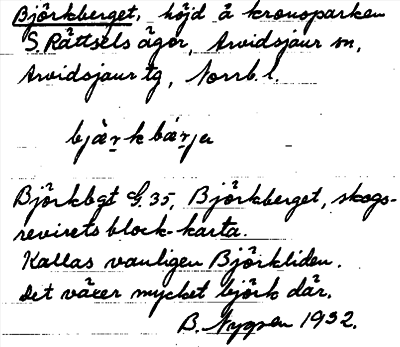 Björkberget, höjd å kronoparken
S. Rättsels ägor, Arvidsjaur sn,
Arvidsjaur tg, Norrb. l.
bjär̨k bär̨ja
Björkbgt G. 35, Björkberget, skogs-
revirets block-karta.
Kallas vanligen Björkliden.
Det växer mycket björk där.
B. Nygren 1932.